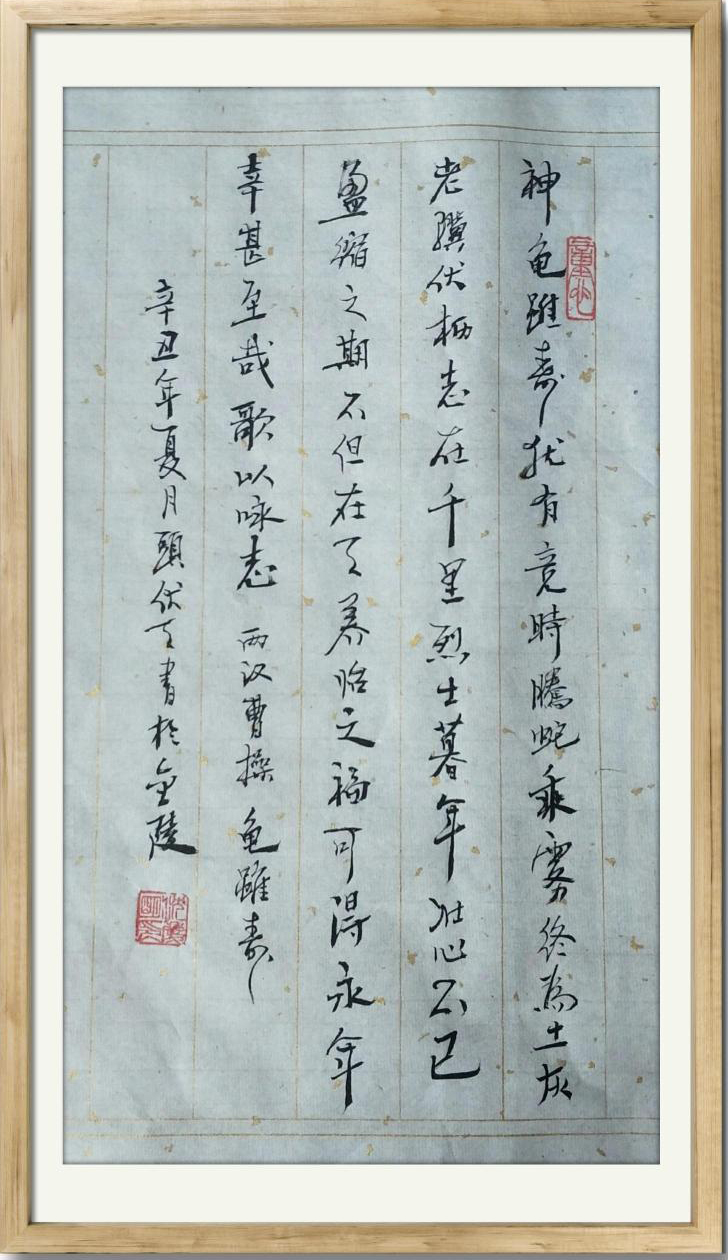 神龟雖寿犹有竟時騰蛇乘雾终為土灰
老驥伏枥志在千里烈士暮年壮心不已
盈缩之期不但在天养怡之福可得永年
幸甚至哉歌以咏志 两汉曹操 龟雖寿
辛丑年夏月頭伏天書於金陵